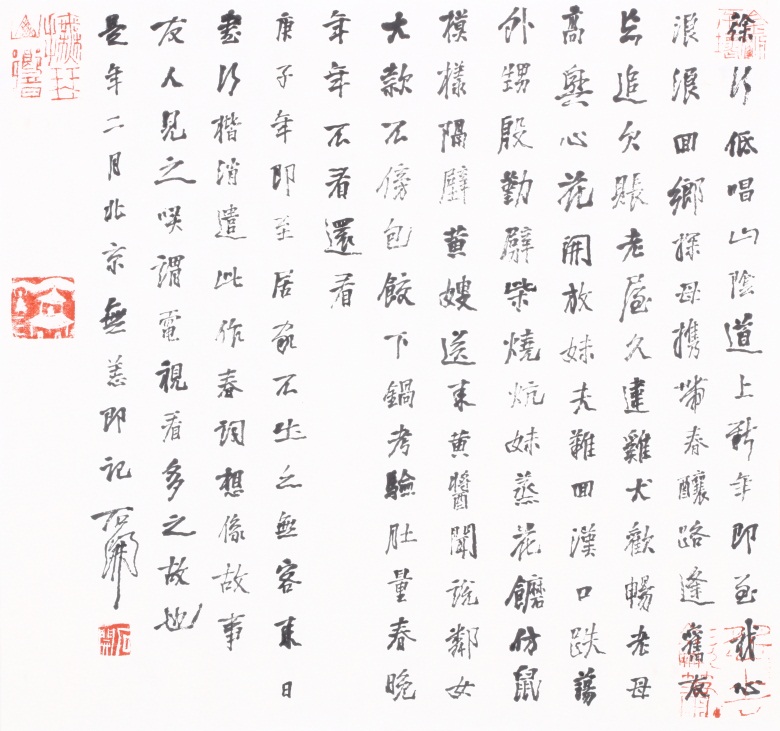 徐行低唱山陰道上新年即至我心
浪浪回鄉探母携帶春釀路逢舊友
忘追欠賬老屋久違雞犬歡暢老母
高興心花開放妹夫難回漢口跌蕩
外甥殷勤劈柴燒炕妹蒸花饝仿鼠
模樣隔壁黄嫂送來黄醬聞說鄰女
大款不傍包餃下鍋考驗肚量春晚
年年不看還看
庚子年即至居家不出之無客來日
書行楷消遣此作春詞想像故事
友人見之笑謂電視看多之故也
是年二月北京無恙即記